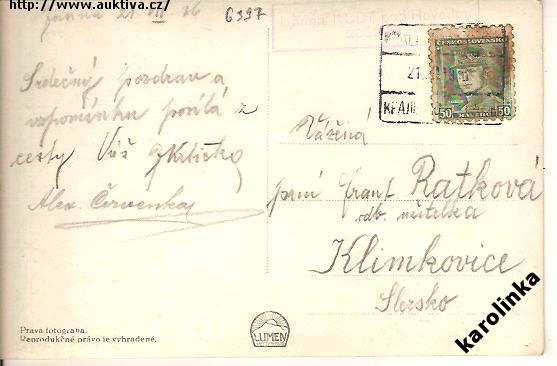 http://www.auktiva.cz/
21. VII. 36
6397
Srdečný pozdrav a
vzpomínku posílá z
cesty Váš
Alex. Červenka
ČESKOSLOVENSKO
50
50
21.
Vážená
paní Frant Ratková
odb. učitelka
Klimkovice
Slezsko
Pravá fotografia.
Reprodukčné právo je vyhradené.
LUMEN
karolinka